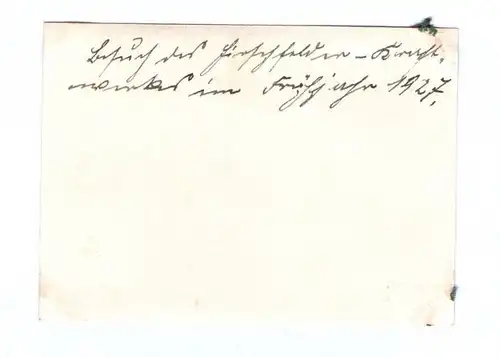 Besuch des Hirschfelder-Kraft-
werkes im Frühjahr 1927.